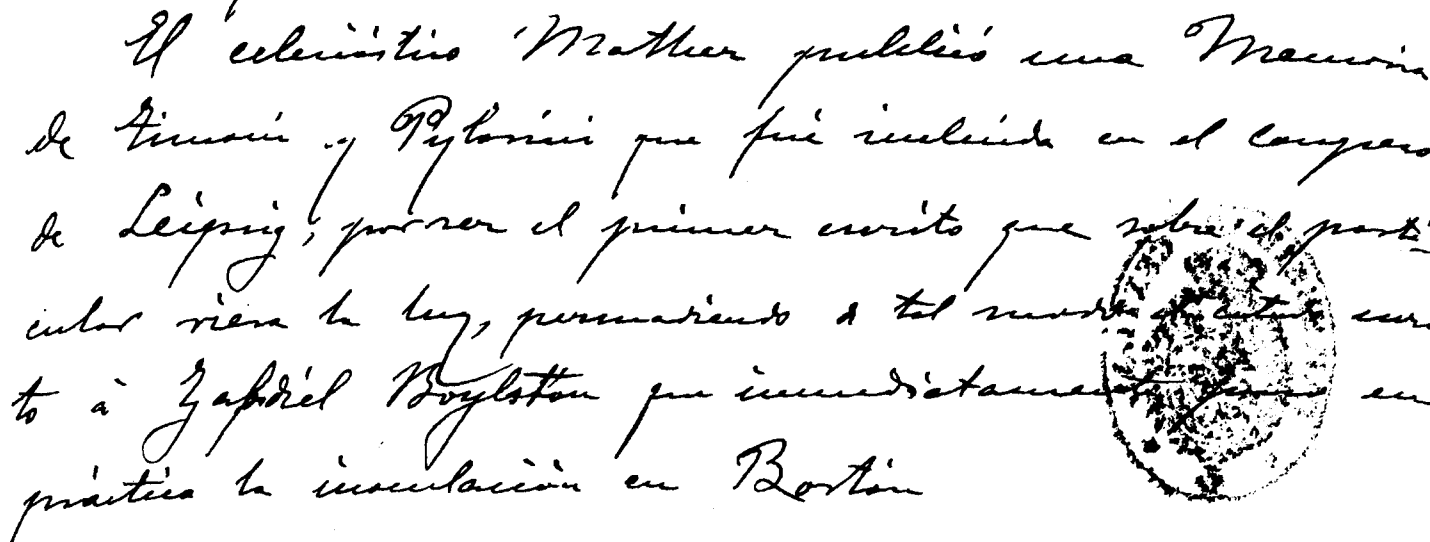 El celesiástico Mather publicó una Memoria
de Timoni y Pylorini que fué incluida en el Congreso
de Leipsig, por ser el primer escrito que sobre el parti-
cular viera la luz, persuadiendo a tal modo el citado escri
to á Zabdiel Boylston que inmediatamente puso en
práctica la inoculación en Boston